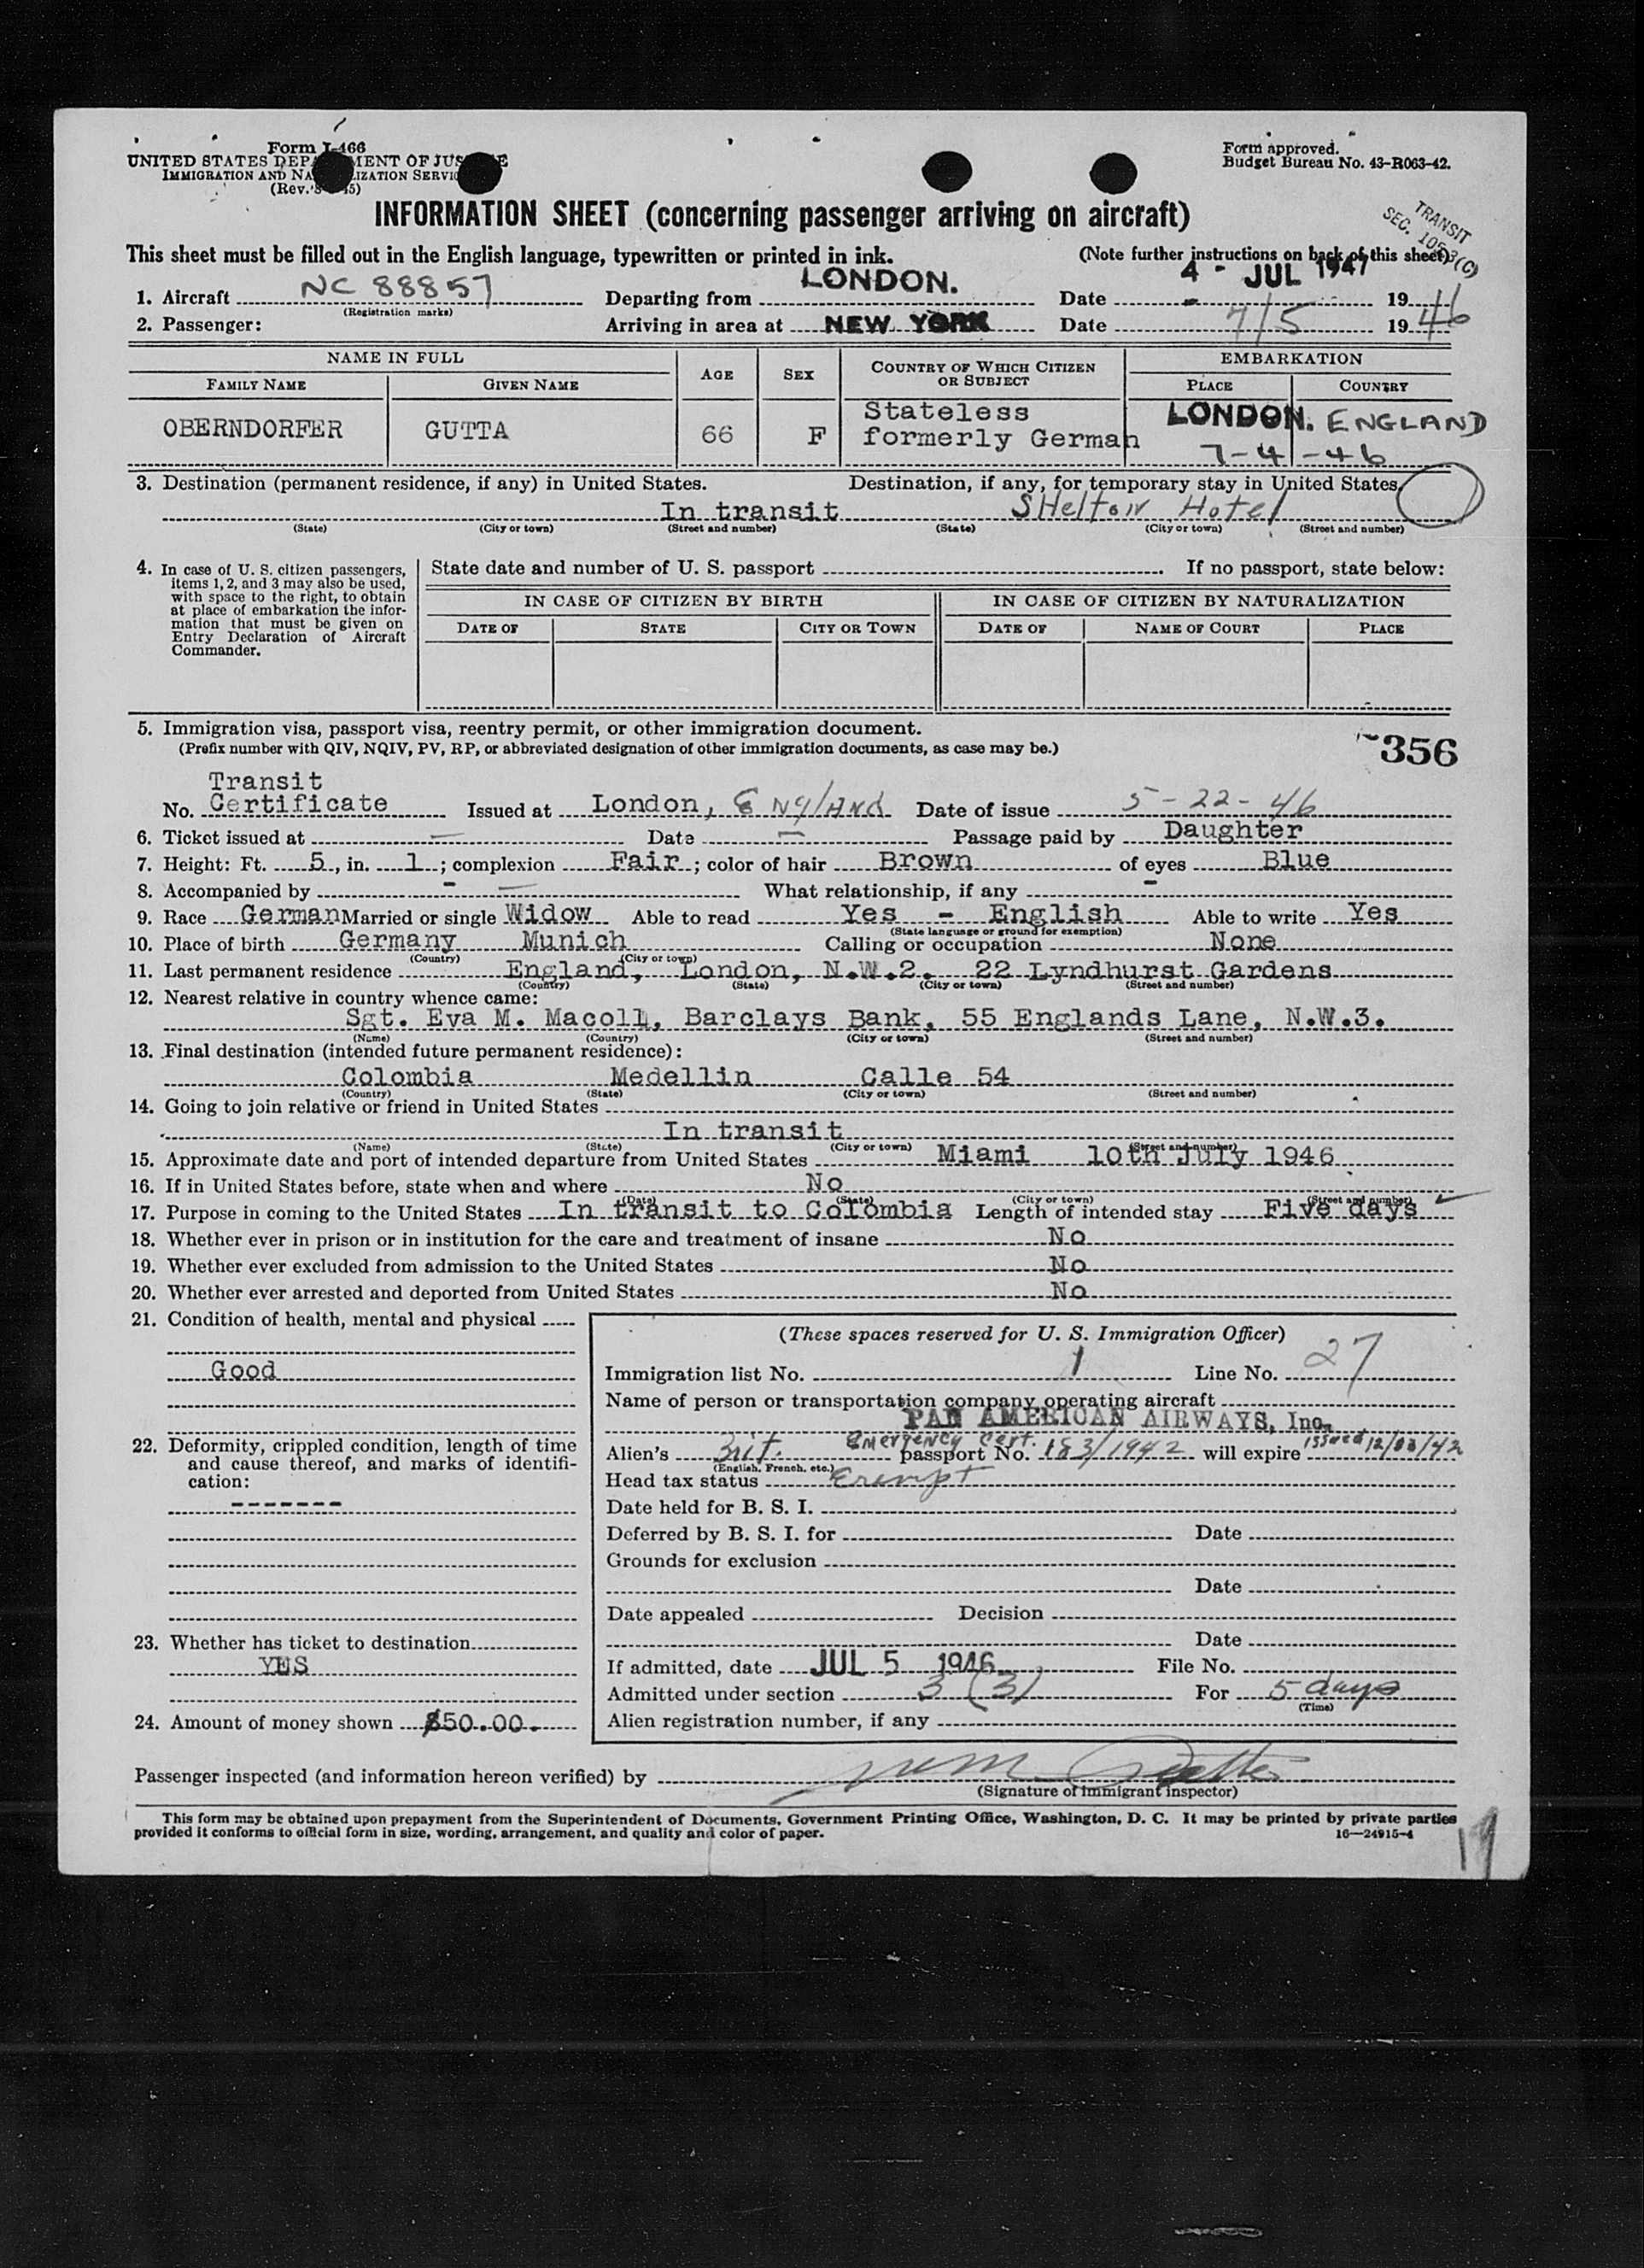 Form I-466
UNITED STATES DEPARTMENT OF JUSTICE
IMMIGRATION AND NATURALIZATION SERVICE
(Rev. 45)
Form approved.
Budget Bureau No. 43-R063-42.
INFORMATION SHEET (concerning passenger arriving on aircraft)
TRANSIT
SEC. 105.3(C)
This sheet must be filled out in the English language, typewritten or printed in ink. (Note further instructions on back of this sheet)
1. Aircraft NC 88857 Departing from LONDON. Date 4 - JUL 1947 1946
(Registration marks)
2. Passenger: Arriving in area at NEW YORK Date 7/5 1946
NAME IN FULL AGE SEX COUNTRY OF WHICH CITIZEN OR SUBJECT EMBARKATION
FAMILY NAME GIVEN NAME PLACE COUNTRY
OBERNDORFER GUTTA 66 F Stateless formerly German LONDON. ENGLAND
7-4-46
3. Destination (permanent residence, if any) in United States. Destination, if any, for temporary stay in United States
In transit SHelton Hotel
(State) (City or town) (Street and number) (State) (City or town) (Street and number)
4. In case of U. S. citizen passengers, items 1, 2, and 3 may also be used, with space to the right, to obtain at place of embarkation the information that must be given on Entry Declaration of Aircraft Commander.
State date and number of U. S. passport . If no passport, state below:
IN CASE OF CITIZEN BY BIRTH IN CASE OF CITIZEN BY NATURALIZATION
DATE OF STATE CITY OR TOWN DATE OF NAME OF COURT PLACE
5. Immigration visa, passport visa, reentry permit, or other immigration document.
(Prefix number with QIV, NQIV, PV, RP, or abbreviated designation of other immigration documents, as case may be.)
356
Transit
No. Certificate Issued at London, ENglANd Date of issue 5-22-46
6. Ticket issued at — Date — Passage paid by Daughter
7. Height: Ft. 5, in. 1; complexion Fair; color of hair Brown of eyes Blue
8. Accompanied by - — What relationship, if any -
9. Race German Married or single Widow Able to read Yes - English Able to write Yes
(State language or ground for exemption)
10. Place of birth Germany Munich Calling or occupation None
(Country) (City or town)
11. Last permanent residence England, London, N.W.2. 22 Lyndhurst Gardens
(Country) (State) (City or town) (Street and number)
12. Nearest relative in country whence came:
Sgt. Eva M. Macoll, Barclays Bank, 55 Englands Lane, N.W.3.
(Name) (Country) (City or town) (Street and number)
13. Final destination (intended future permanent residence):
Colombia Medellin Calle 54
(Country) (State) (City or town) (Street and number)
14. Going to join relative or friend in United States
In transit
(Name) (State) (City or town) (Street and number)
15. Approximate date and port of intended departure from United States Miami 10th July 1946
16. If in United States before, state when and where No
(Date) (State) (City or town) (Street and number)
17. Purpose in coming to the United States In transit to Colombia Length of intended stay Five days
18. Whether ever in prison or in institution for the care and treatment of insane No
19. Whether ever excluded from admission to the United States No
20. Whether ever arrested and deported from United States No
21. Condition of health, mental and physical
Good
22. Deformity, crippled condition, length of time and cause thereof, and marks of identification:
-------
23. Whether has ticket to destination
YES
24. Amount of money shown $50.00.
(These spaces reserved for U. S. Immigration Officer)
Immigration list No. 1 Line No. 27
Name of person or transportation company operating aircraft
PAN AMERICAN AIRWAYS, Inc.
Alien's Brit. Emergency Cert. passport No. 183/1942 will expire issued
(English, French, etc.)
Head tax status Exempt
Date held for B. S. I.
Deferred by B. S. I. for Date
Grounds for exclusion
Date
Date appealed Decision
Date
If admitted, date JUL 5 1946 File No.
Admitted under section 3 (3) For 5 days
(Time)
Alien registration number, if any
Passenger inspected (and information hereon verified) by
(Signature of immigrant inspector)
This form may be obtained upon prepayment from the Superintendent of Documents, Government Printing Office, Washington, D. C. It may be printed by private parties
provided it conforms to official form in size, wording, arrangement, and quality and color of paper. 16—24915-4